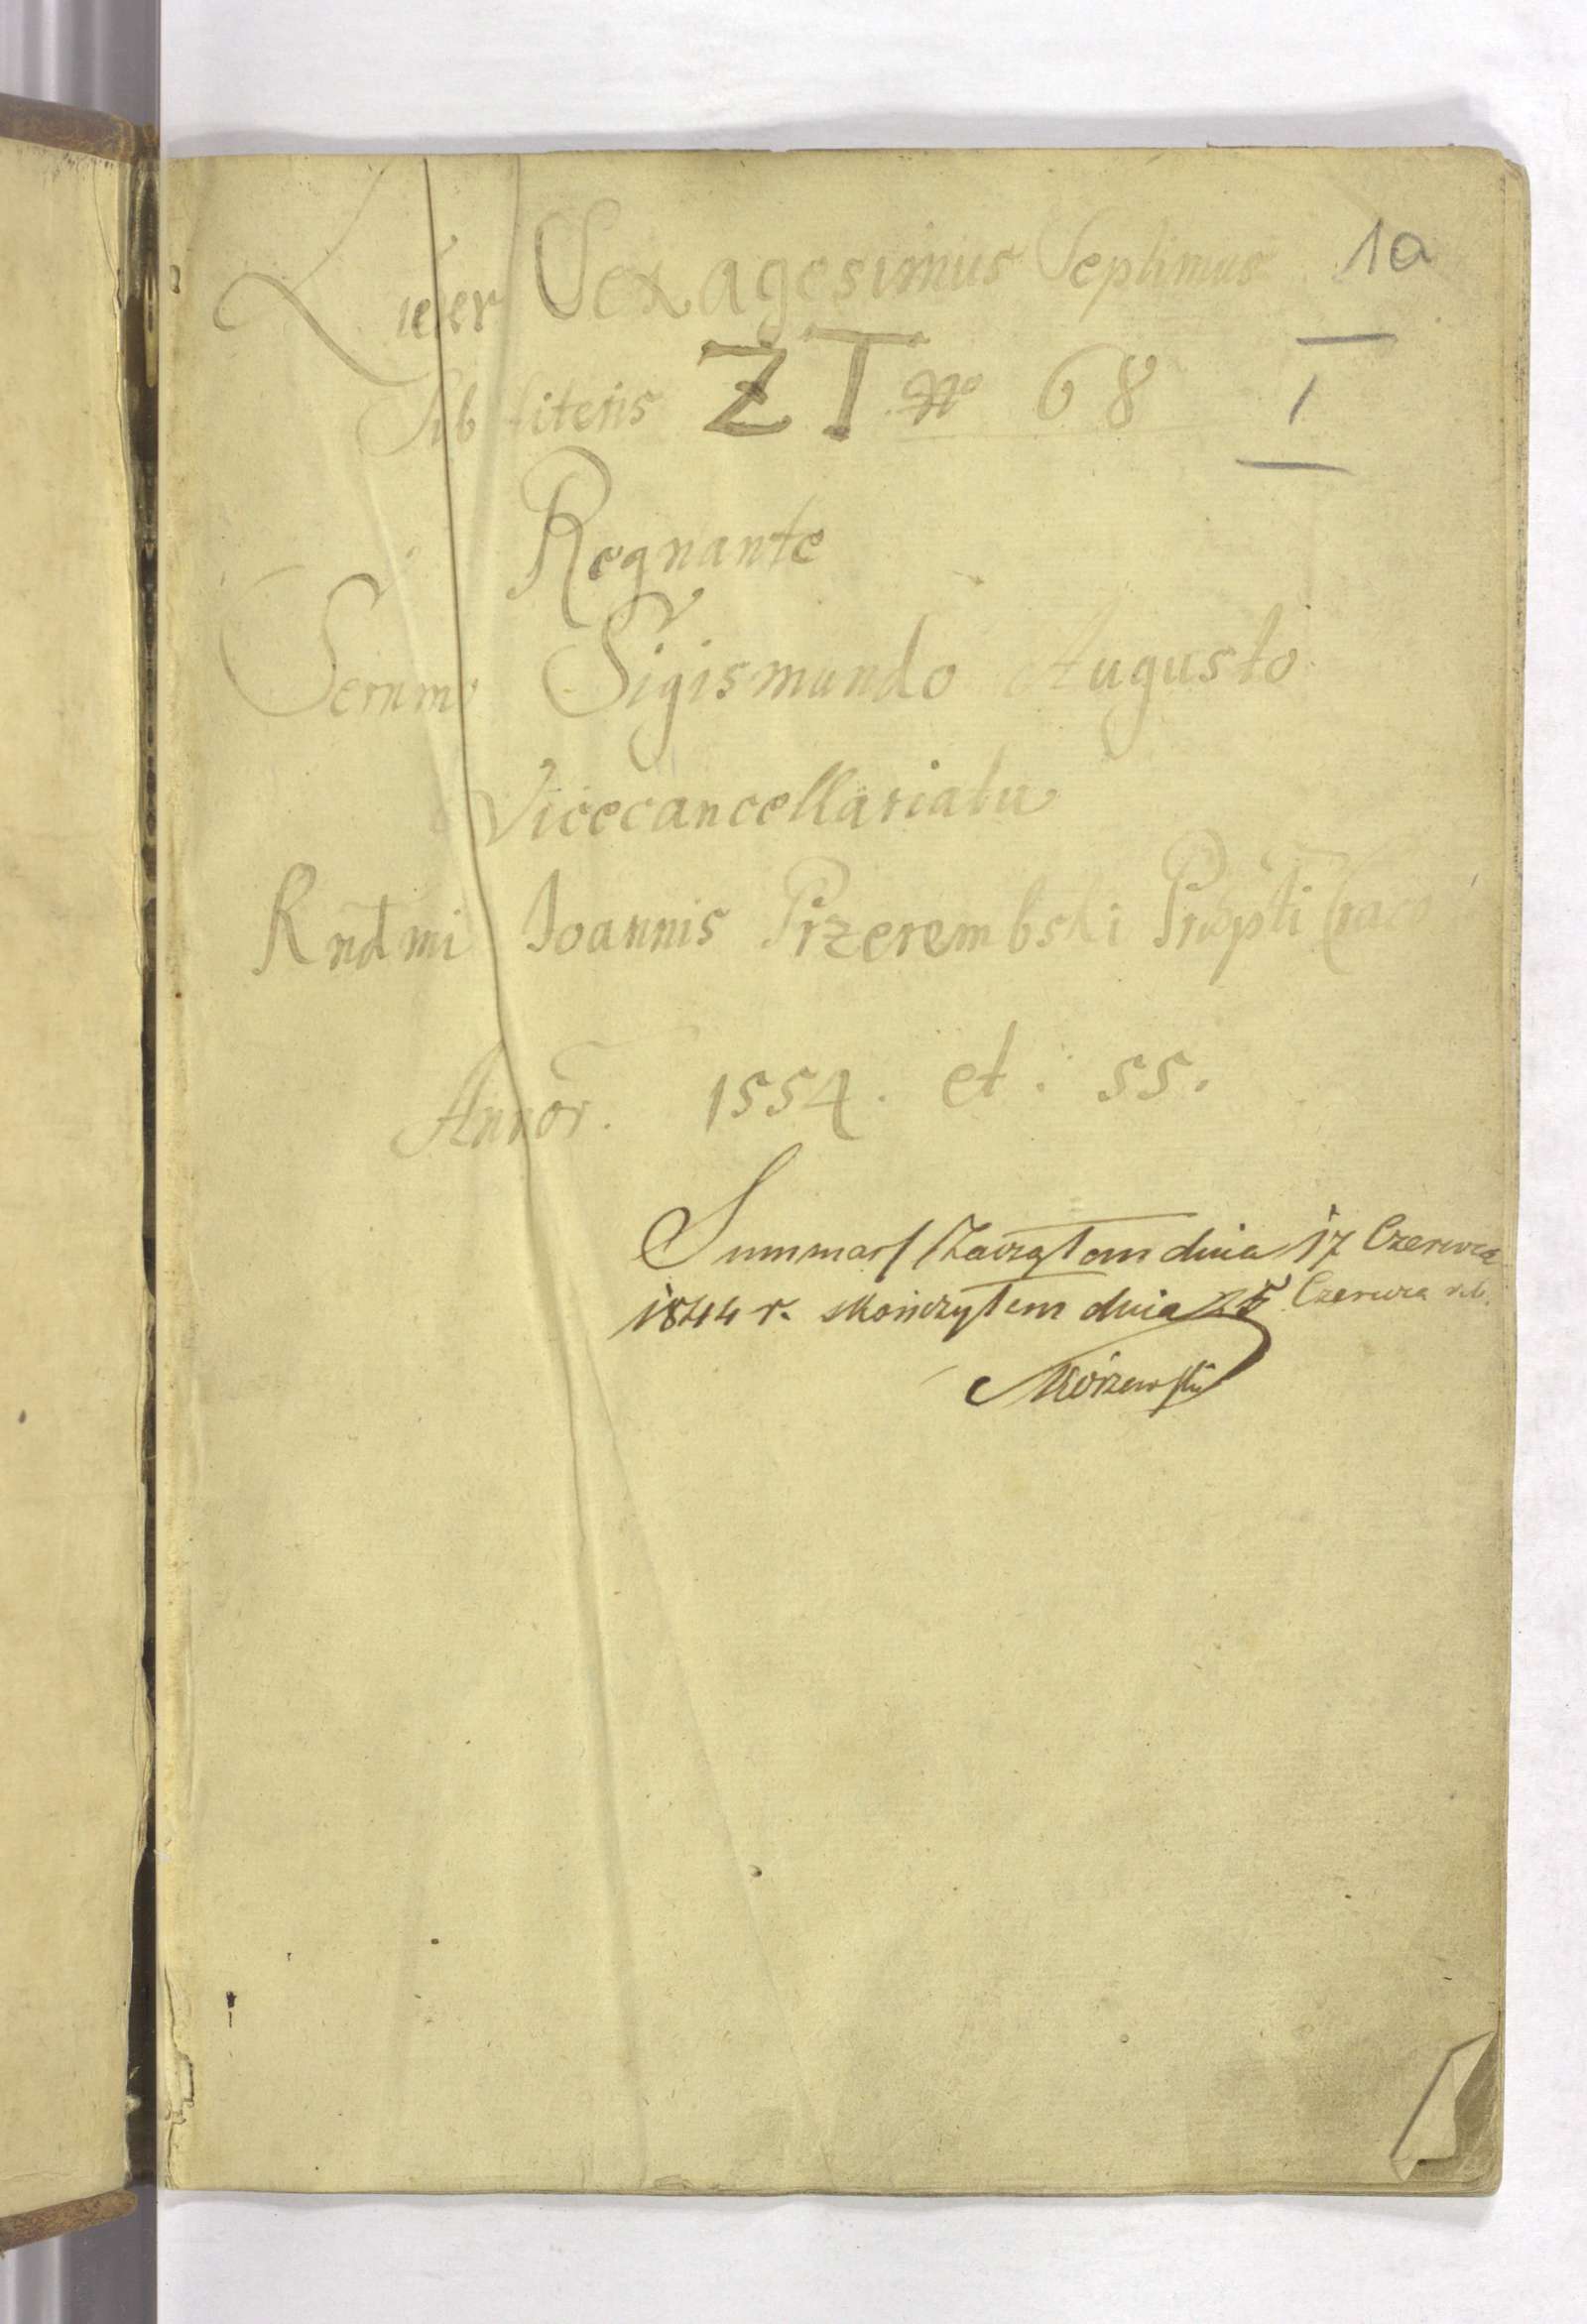 1a
Liber Sexagesimus Septimus
Sub literis ZT No 68 I
Regnante
Sernmo Sigismundo Augusto
Vicecancellariatu
Rndmi Joannis Przerembski Prӕpti Craco
Annor. 1554. et. 55.
Summar/ Zacząłem dnia 17 Czerwca
1844 r. skończyłem dnia 25 Czerwca r.b.